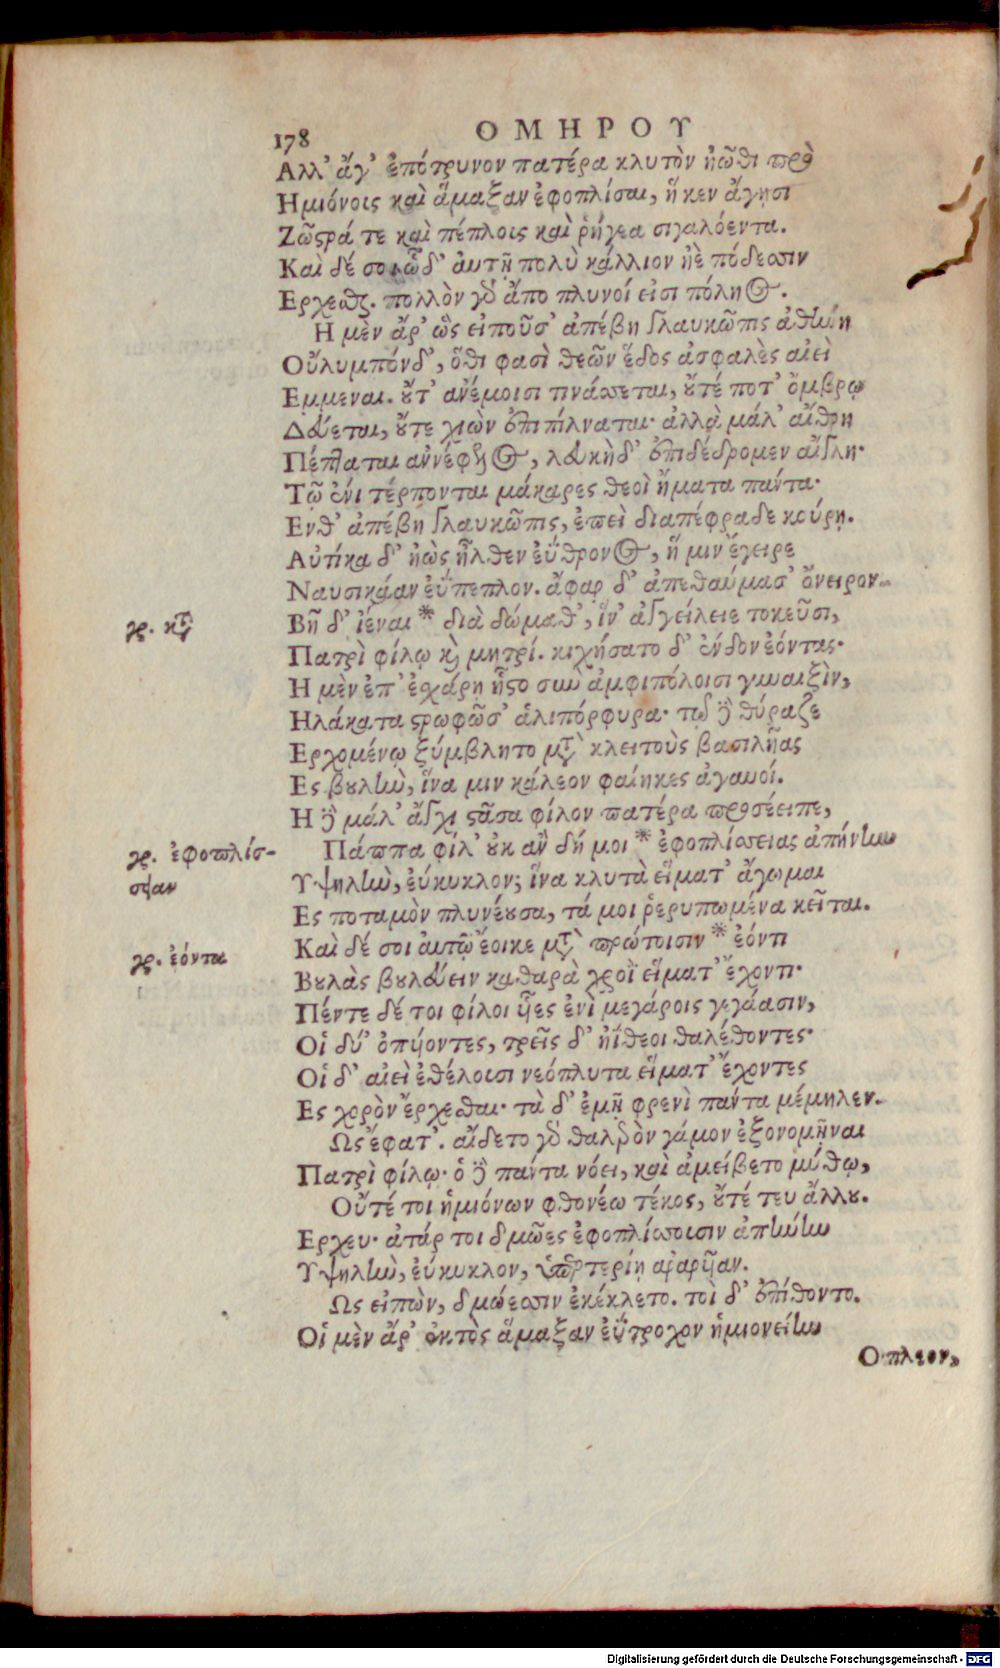 178 ΟΜΗΡΟΥ
Αλλ' ἄγ' ἐπότρυνον πατέρα κλυτὸν ἠῶθι πρὸ
Ημιόνοις καὶ ἅμαξαν ἐφοπλίσαι, ἥ κεν ἄγῃσι
Ζῶςρά τε καὶ πέπλοις καὶ ῥήγεα σιγαλόεντα.
Καὶ δέ σοι ὧδ' αὐτῇ πολὺ κάλλιον ἠὲ πόδεσσιν
Ερχεσθαι. πολλὸν γὰρ ἄπο πλυνοί εἰσι πόληος.
Η μὲν ἄρ' ὣς εἰποῦσ' ἀπέβη γλαυκῶπις ἀθήνη
Οὔλυμπόνδ', ὅθι φασὶ θεῶν ἕδος ἀσφαλὲς αἰεὶ
Εμμεναι. οὔτ' ἀνέμοισι τινάσσεται, οὔτέ ποτ' ὄμβρῳ
Δεύεται, οὔτε χιὼν ἐπιπίλναται· ἀλλὰ μάλ' αἴθρη
Πέπταται ἀννέφελος, λευκὴ δ' ἐπιδέδρομεν αἴγλη·
Τῷ ἐνι τέρπονται μάκαρες θεοὶ ἤματα πάντα·
Ενθ' ἀπέβη γλαυκῶπις, ἐπεὶ διαπέφραδε κούρῃ.
Αὐτίκα δ' ἠὼς ἦλθεν ἐΰθρονος, ἥ μιν ἔγειρε
Ναυσικάαν ἐΰπεπλον. ἄφαρ δ' ἀπεθαύμασ' ὄνειρον.
γρ. κατὰ
Βῆ δ' ἰέναι * διὰ δώμαθ', ἵν' ἀγγείλειε τοκεῦσι,
Πατρὶ φίλῳ καὶ μητρί. κιχήσατο δ' ἔνδον ἐόντας·
Η μὲν ἐπ' ἐχάρῃ ἧςο σὺν ἀμφιπόλοισι γυναιξὶν,
Ηλάκατα ςρωφῶσ' ἁλιπόρφυρα· τῷ δὲ θύραζε
Ερχομένῳ ξύμβλητο μετὰ κλειτοὺς βασιλῆας
Ες βουλὴν, ἵνα μιν κάλεον φαίηκες ἀγαυοί.
Η δὲ μάλ' ἄγχι ςᾶσα φίλον πατέρα προσέειπε,
γρ. ἐφοπλίσ-
σειαν
Πάππα φίλ' οὐκ ἂν δή μοι * ἐφοπλίσσειας ἀπήνην
Υψηλὴν, εὐκυκλον; ἵνα κλυτὰ εἵματ' ἄγωμαι
Ες ποταμὸν πλυνέουσα, τά μοι ῥερυπωμένα κεῖται.
γρ. ἐόντα
Καὶ δέ σοι αὐτῷ ἔοικε μετὰ πρώτοισιν * ἐόντι
Βουλὰς βουλεύειν καθαρὰ χροῒ εἵματ' ἔχοντι·
Πέντε δέ τοι φίλοι υἷες ἐνὶ μεγάροις γεγάασιν,
Οἱ δύ' ὀπυίοντες, τρεῖς δ' ἠΐθεοι θαλέθοντες·
Οἱ δ' αἰεὶ ἐθέλουσι νεόπλυτα εἵματ' ἔχοντες
Ες χορὸν ἔρχεσθαι· τὰ δ' ἐμῇ φρενὶ πάντα μέμηλεν.
Ως ἔφατ'. αἴδετο γὰρ θαλερὸν γάμον ἐξονομῆναι
Πατρὶ φίλῳ· ὁ δὲ πάντα νόει, καὶ ἀμείβετο μύθῳ,
Οὔτέ τοι ἡμιόνων φθονέω τέκος, οὔτέ τευ ἄλλου.
Ερχευ· ἀτάρ τοι δμῶες ἐφοπλίσσουσιν ἀπήνην
Υψηλὴν, εὐκυκλον, ὑπερτερίῃ ἀραρυῖαν.
Ως εἰπὼν, δμώεσσιν ἐκέκλετο. τοὶ δ' ἐπίθοντο.
Οἱ μὲν ἄρ' ἐκτὸς ἅμαξαν ἐΰτροχον ἡμιονείην
Οπλεον,
Digitalisierung gefördert durch die Deutsche Forschungsgemeinschaft - DFG